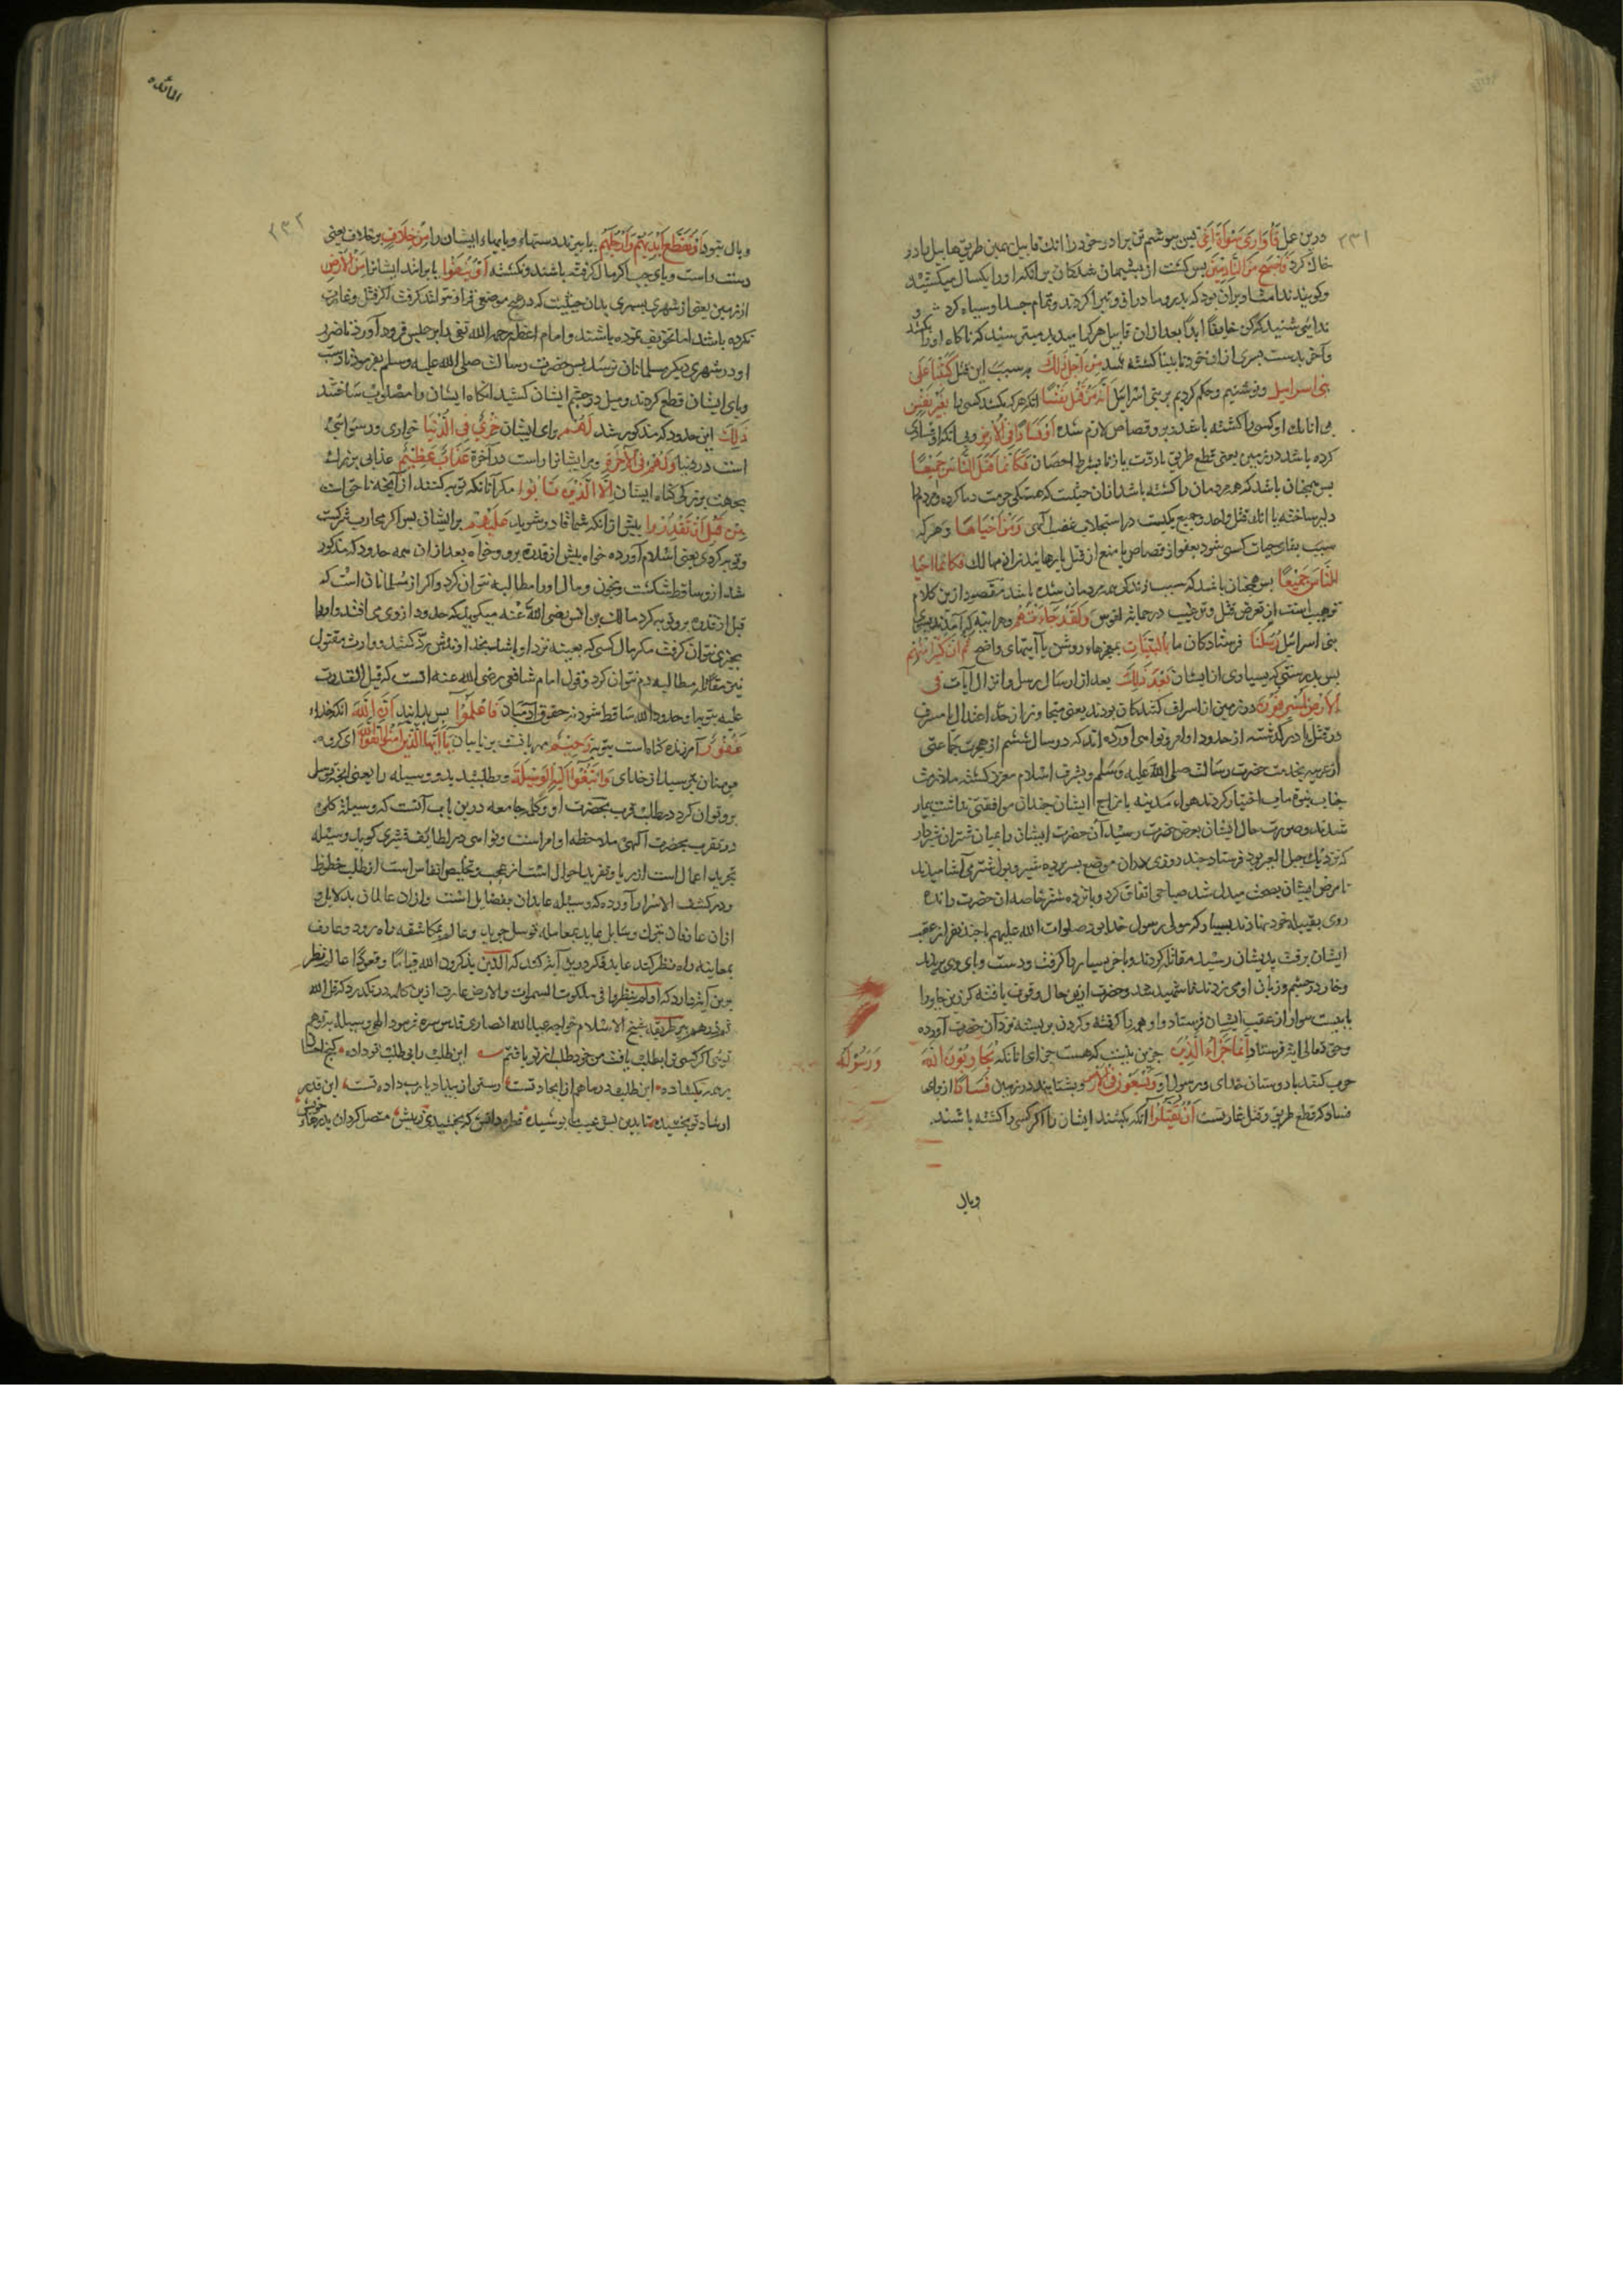 ۲۳۱
درین عمل فَأُوَارِيَ سَوْأَةَ أَخِي پس بپوشم تن برادر خود را انک قابیل بهمین طریق هابیل را در
خاک کرد فَأَصْبَحَ مِنَ النَّادِمِينَ پس کشت از پشیمان شدکان بر انکه او را یکسال میکشید
و کویند ندامت او بران بود که پدر و مادر از و تبرا کردند و تمام جسد او سیاه کرد شد و
ندائی شنید که کن خایفا ابدا بعد از ان قابیل هر کرا میدید میترسید که ناکاه او را بکشد
و آخر بدست پسری ازان خود نابینا کشته شد مِنْ أَجْلِ ذَلِكَ بر سبب این قتل كَتَبْنَا عَلَى
بَنِي إِسْرَائِيلَ نوشتیم و حکم کردیم بر بنی اسرائیل أَنَّهُ مَنْ قَتَلَ نَفْسًا انکه هر که بکشد کسی را بِغَيْرِ نَفْسٍ
بی انک او کسی را کشته باشد و برو قصاص لازم شده أَوْ فَسَادٍ فِي الْأَرْضِ و بی انکه او فسادی
کرده باشد در زمین یعنی قطع طریق یا ردت یا زنا بشرط احصان فَكَأَنَّمَا قَتَلَ النَّاسَ جَمِيعًا
پس همچنان باشد که همه مردمان را کشته باشد ازان حیثیت که هتک حرمت دما کرده و مردم را
دلیر ساخته یا انک قتل واحد و جمیع یکیست در استجلاب غضب الهی وَمَنْ أَحْيَاهَا و هر که
سبب بقای حیات کسی شود بعفو از قصاص یا منع از قتل یا برهاند از مهالک فَكَأَنَّمَا أَحْيَا
النَّاسَ جَمِيعًا پس همچنان باشد که سبب زندکی همه مردمان شده باشد مقصود ازین کلام
ترهیب است از تعرض قتل و ترغیب در حمایت نفوس وَلَقَدْ جَاءَتْهُمْ و هر اینه که آمدند بدیشان
بنی اسرائیل رُسُلُنَا فرستادکان ما بِالْبَيِّنَاتِ بمعجزهاء روشن یا آیتهای واضح ثُمَّ إِنَّ كَثِيرًا مِنْهُمْ
پس بدرستی که بسیاری از ایشان بَعْدَ ذَلِكَ بعد از ارسال رسل و انزال آیات فِي
الْأَرْضِ لَمُسْرِفُونَ در زمین از اسراف کنندکان بودند یعنی متجاوز از حد اعتدال یا مسرف
در قتل یا در گذشته از حدود اوامر و نواهی آورده اند که در سال ششم از هجرت جماعتی
از عرینه بخدمت حضرت رسالت صلی الله علیه وسلم و بشرف اسلام معزز کشته ملازمت
جناب نبوة ماب اختیار کردند هواء مدینه با مزاج ایشان چندان موافقتی نداشت بیمار
شدند و صورت حال ایشان بعرض حضرت رسید آن حضرت ایشان را بمیان شتران شیردار
که نزدیک جبل العیر بود فرستاد چند روزی دران موضع بسر برده شیر و بول شتر می آشامیدند
تا مرض ایشان بصحت مبدل شد صباحی اتفاق کرد و پانزده شتر خاصه ان حضرت رانده
روی بقبیله خود نهادند یسار که مولی رسول خدا بود صلوات الله علیهم با چند نفر از عقب
ایشان برفت بدیشان رسید مقاتله کردند و باخر یسار را کرفتند و دست و پای وی بریدند
و خار در چشم و زبان او می زدند تا شهید شد و حضرت ازین حال وقوف یافته کرز بن جابر را
با بیست سوار از عقب ایشان فرستاد و او همه را کرفته و کردن بر بسته نزد آن حضرت آورده
و حق تعالی ایة فرستاد إِنَّمَا جَزَاءُ الَّذِينَ جزین نیست که هست جزای انانکه يُحَارِبُونَ اللَّهَ
وَرَسُولَهُ
حرب کنند با دوستان خدای و رسول او وَيَسْعَوْنَ فِي الْأَرْضِ و بشتابند در زمین فَسَادًا از برای
فساد که قطع طریق و قتل غارتست أَنْ يُقَتَّلُوا آنکه بکشند ایشان را اکر کسی را کشته باشند
وبال
المائده
۲۳۲
وبال شود أَوْ تُقَطَّعَ أَيْدِيهِمْ وَأَرْجُلُهُمْ یا ببرند دستهاء و پایهاء ایشان را مِنْ خِلَافٍ بر خلاف یعنی
دست راست و پای چپ اکر مال کرفته باشند و نکشته أَوْ يُنْفَوْا یا برانند ایشان را مِنَ الْأَرْضِ
از زمین یعنی از شهری بشهری بدان حیثیت که در هیچ موضع قرار نتوانند کرفت اکر قتل و غارت
نکرده باشند اما تخویف نموده باشند و امام اعظم رحمه الله نفی را بر حبس فرود آورد تا ضرر
او در شهری دیکر بمسلمانان نرسد پس حضرت رسالت صلی الله علیه وسلم بفرمود تا دست
و پای ایشان قطع کردند و میل در چشم ایشان کشید انکاه ایشان را مصلوب ساختند
ذَلِكَ این حدود که مذکور شد لَهُمْ برای ایشان خِزْيٌ فِي الدُّنْيَا خواری و رسوائی
است در دنیا وَلَهُمْ فِي الْآخِرَةِ و مر ایشان را است در آخرة عَذَابٌ عَظِيمٌ عذابی بزرک
بجهت بزرکی کناه ایشان إِلَّا الَّذِينَ تَابُوا مکر آنانکه توبه کنند از آنچه ناخواست
مِنْ قَبْلِ أَنْ تَقْدِرُوا پیش از انکه شما قادر شوید عَلَيْهِمْ بر ایشان پس اکر محارب مشرکست
و توبه کردی یعنی اسلام آورده خواه پیش از قدرة برو و خواه بعد از ان همه حدود که مذکور
شد ازو ساقط کشت و بخون و مال او را مطالبه نتوان کرد و اکر از مسلمانان است که
قبل از قدرة برو توبه کرد مالک بن انس رضی الله عنه میکوید که حدود از وی می افتد و او را
بچیزی نتوان کرفت مکر مال کسی که بعینه نزد او باشد بخداوندش رد کنند و وارث مقتول
نیز مقاتل را مطالبه دم نتوان کرد و قول امام شافعی رضی الله عنه انست که قبل القدرت
علیه بتوبها و حدود الله ساقط شود نه حقوق آدمیان فَاعْلَمُوا پس بدانید أَنَّ اللَّهَ انکه خداء
غَفُورٌ آمرزنده کناه است بتوبه رَحِيمٌ مهربانست بر تایبان يَا أَيُّهَا الَّذِينَ آمَنُوا اتَّقُوا اللَّهَ ای کروه
مومنان بترسید از خدای وَابْتَغُوا إِلَيْهِ الْوَسِيلَةَ و بطلبید بدو وسیله را یعنی انچه توسل
برو توان کرد در طلب قرب بحضرت او و کلمه جامعه درین باب آنست که وسیلۀ کلی
در تقرب بحضرت آلهی ملاحظه اوامر است و نواهی در لطائف قشیری کوید وسیله
تجرید اعمال است از ریا و تفرید احوال است از عجب و تخلیص انفاس است از طلب حظوظ
و در کشف الاسرار آورده که وسیله عابدان بفضایل است و ازان عالمان بدلایل و
ازان عارفان بترک وسایل عابد بمعامله توسل جوید و عالم بمکاشفه راه رود و عارف
بمعاینه راه نظر کند عابد فکر درین آیه کند که الذین یذکرون الله قیاما و قعودا عالم نظر
برین آیه دارد که اولم ینظروا فی ملکوت السموات والارض عارف ازین کلمه در نکذرد که قل الله
ثم ذرهم پیر طریقه شیخ الاسلام خواجه عبد الله انصاری قدس سره فرمود الهی وسیله بتو هم
توئی اکر کسی ترا بطلب یافت من خود طلب از تو یافتم این طلب را بی طلب تو داده کنج احسان
بر همه بکشاده این طلب در ما هم از ایجاد تست رستن از بیداد یا رب داده تست این قدر
ارشاد تو بخشیده تا بدین بس عیب ما پوشیده قطره دانش که بخشیدی ز پیش متصل کردان بدریاهاء
خویش